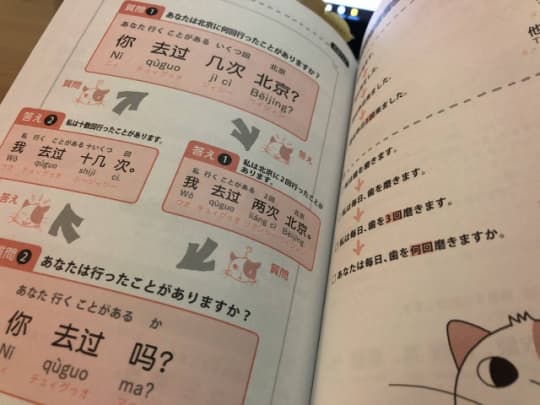 質問 1 あなたは北京に何回行ったことがありますか?
あなた 行く ことがある いくつ 回 北京
你 去过 几次 北京?
Nǐ qùguo jǐ cì Běijīng?
質問
答え
答え 2 私は十数回行ったことがあります。
私 行く ことがある 十いくつ 回
我 去过 十几 次。
Wǒ qùguo shíjǐ cì
答え 1 私は北京に2回行ったことが
あります。
私 行く ことがある 2回 北京
我 去过 两次 北京。
Wǒ qùguo liǎng cì Běijīng
答え
質問
質問 2 あなたは行ったことがありますか?
あなた 行く ことがある か
你 去过 吗?
Nǐ qùguo ma?
ました。
ました。
歯を磨きます。
私は毎日、歯を磨きます。
私は毎日、歯を3回磨きます。
あなたは毎日、歯を何回磨きますか。